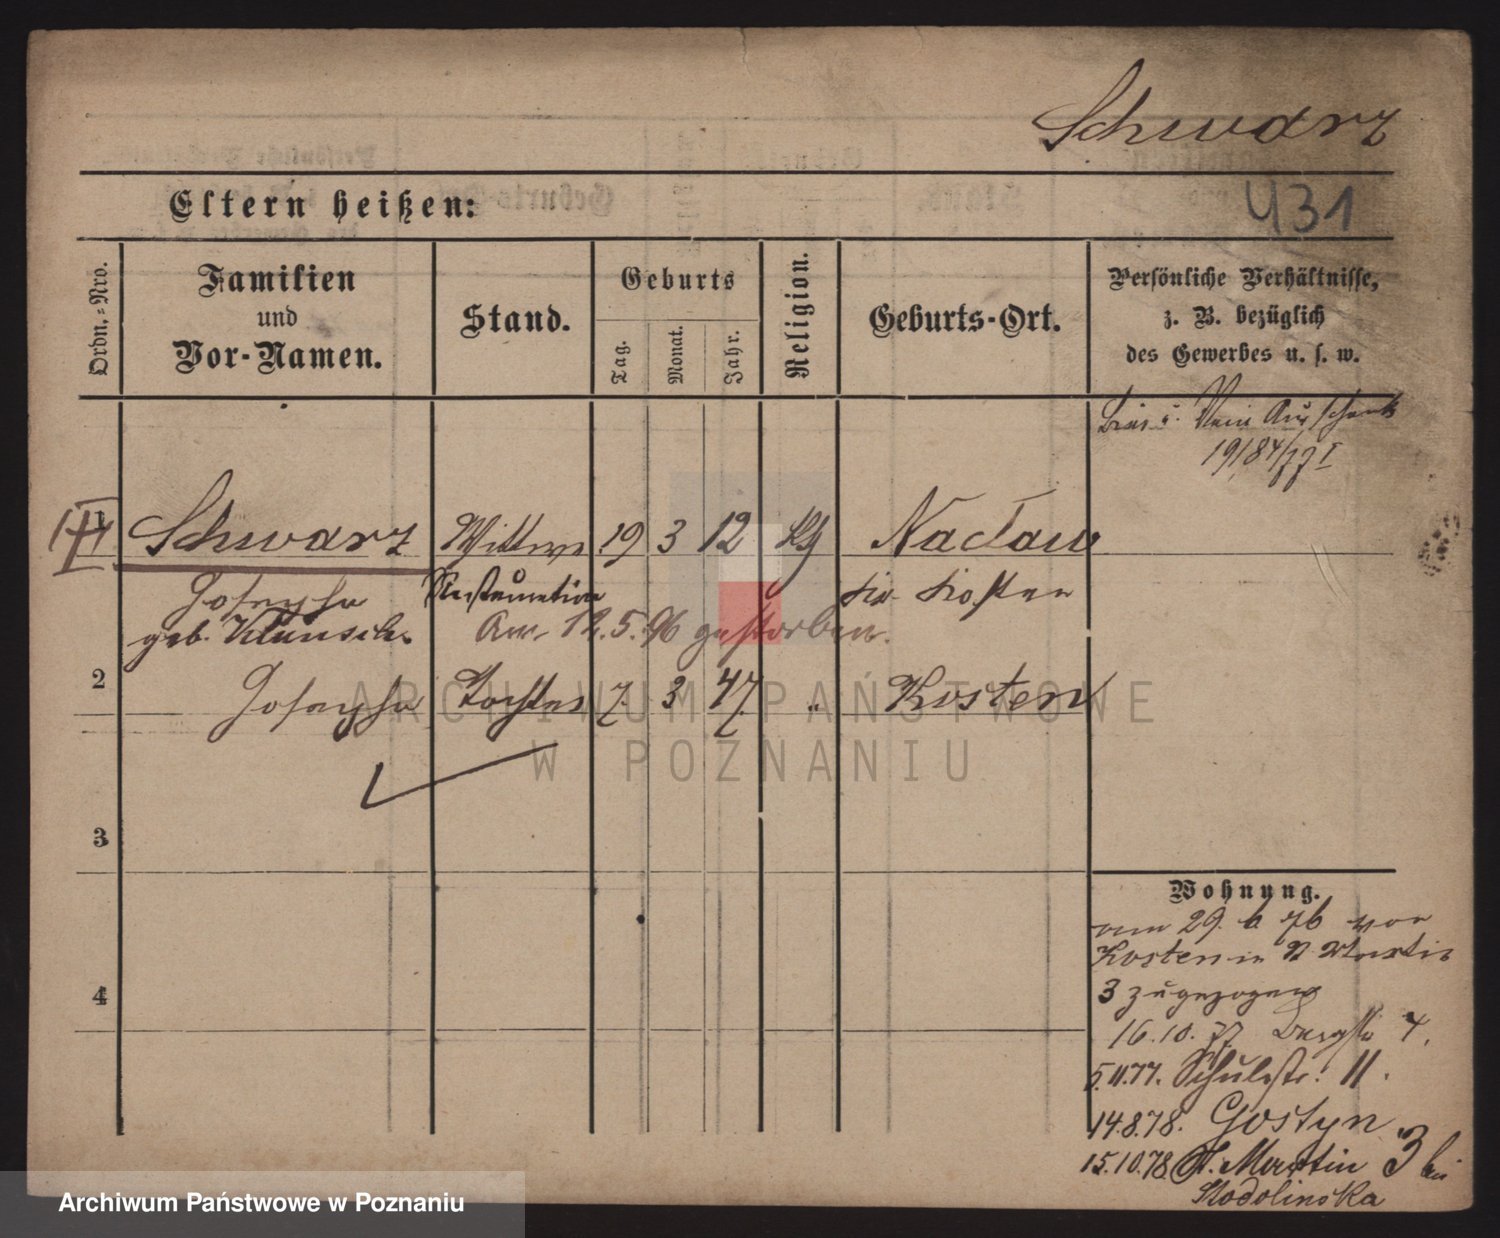 Schwarz
Eltern heißen:
431
Ordn.-Nro.
Familien
und
Vor-Namen.
Stand.
Geburts
Tag.
Monat.
Jahr.
Religion.
Geburts-Ort.
Persönliche Verhältnisse,
z. B. bezüglich
des Gewerbes u. s. w.
Bier u. Wein Ausschank
19184/77 I
1 Schwarz Wittwe 19 3 12 Nacław
Josepha Restauration Kr. Kosten
geb. Am 12.5.96 gestorben.
2 Josepha Tochter 7. 3 47. " Kosten
3
4
Wohnung.
am 29. 6 76 von
Kosten in St Martin
3 zugezogen
16.10.77 Bergstr 4.
5.11.77. Schulstr. 11.
14.8.78. Gostyn
15.10.78 St. Martin 3 bei
Stodolinska
ARCHIWUM PAŃSTWOWE
W POZNANIU
Archiwum Państwowe w Poznaniu